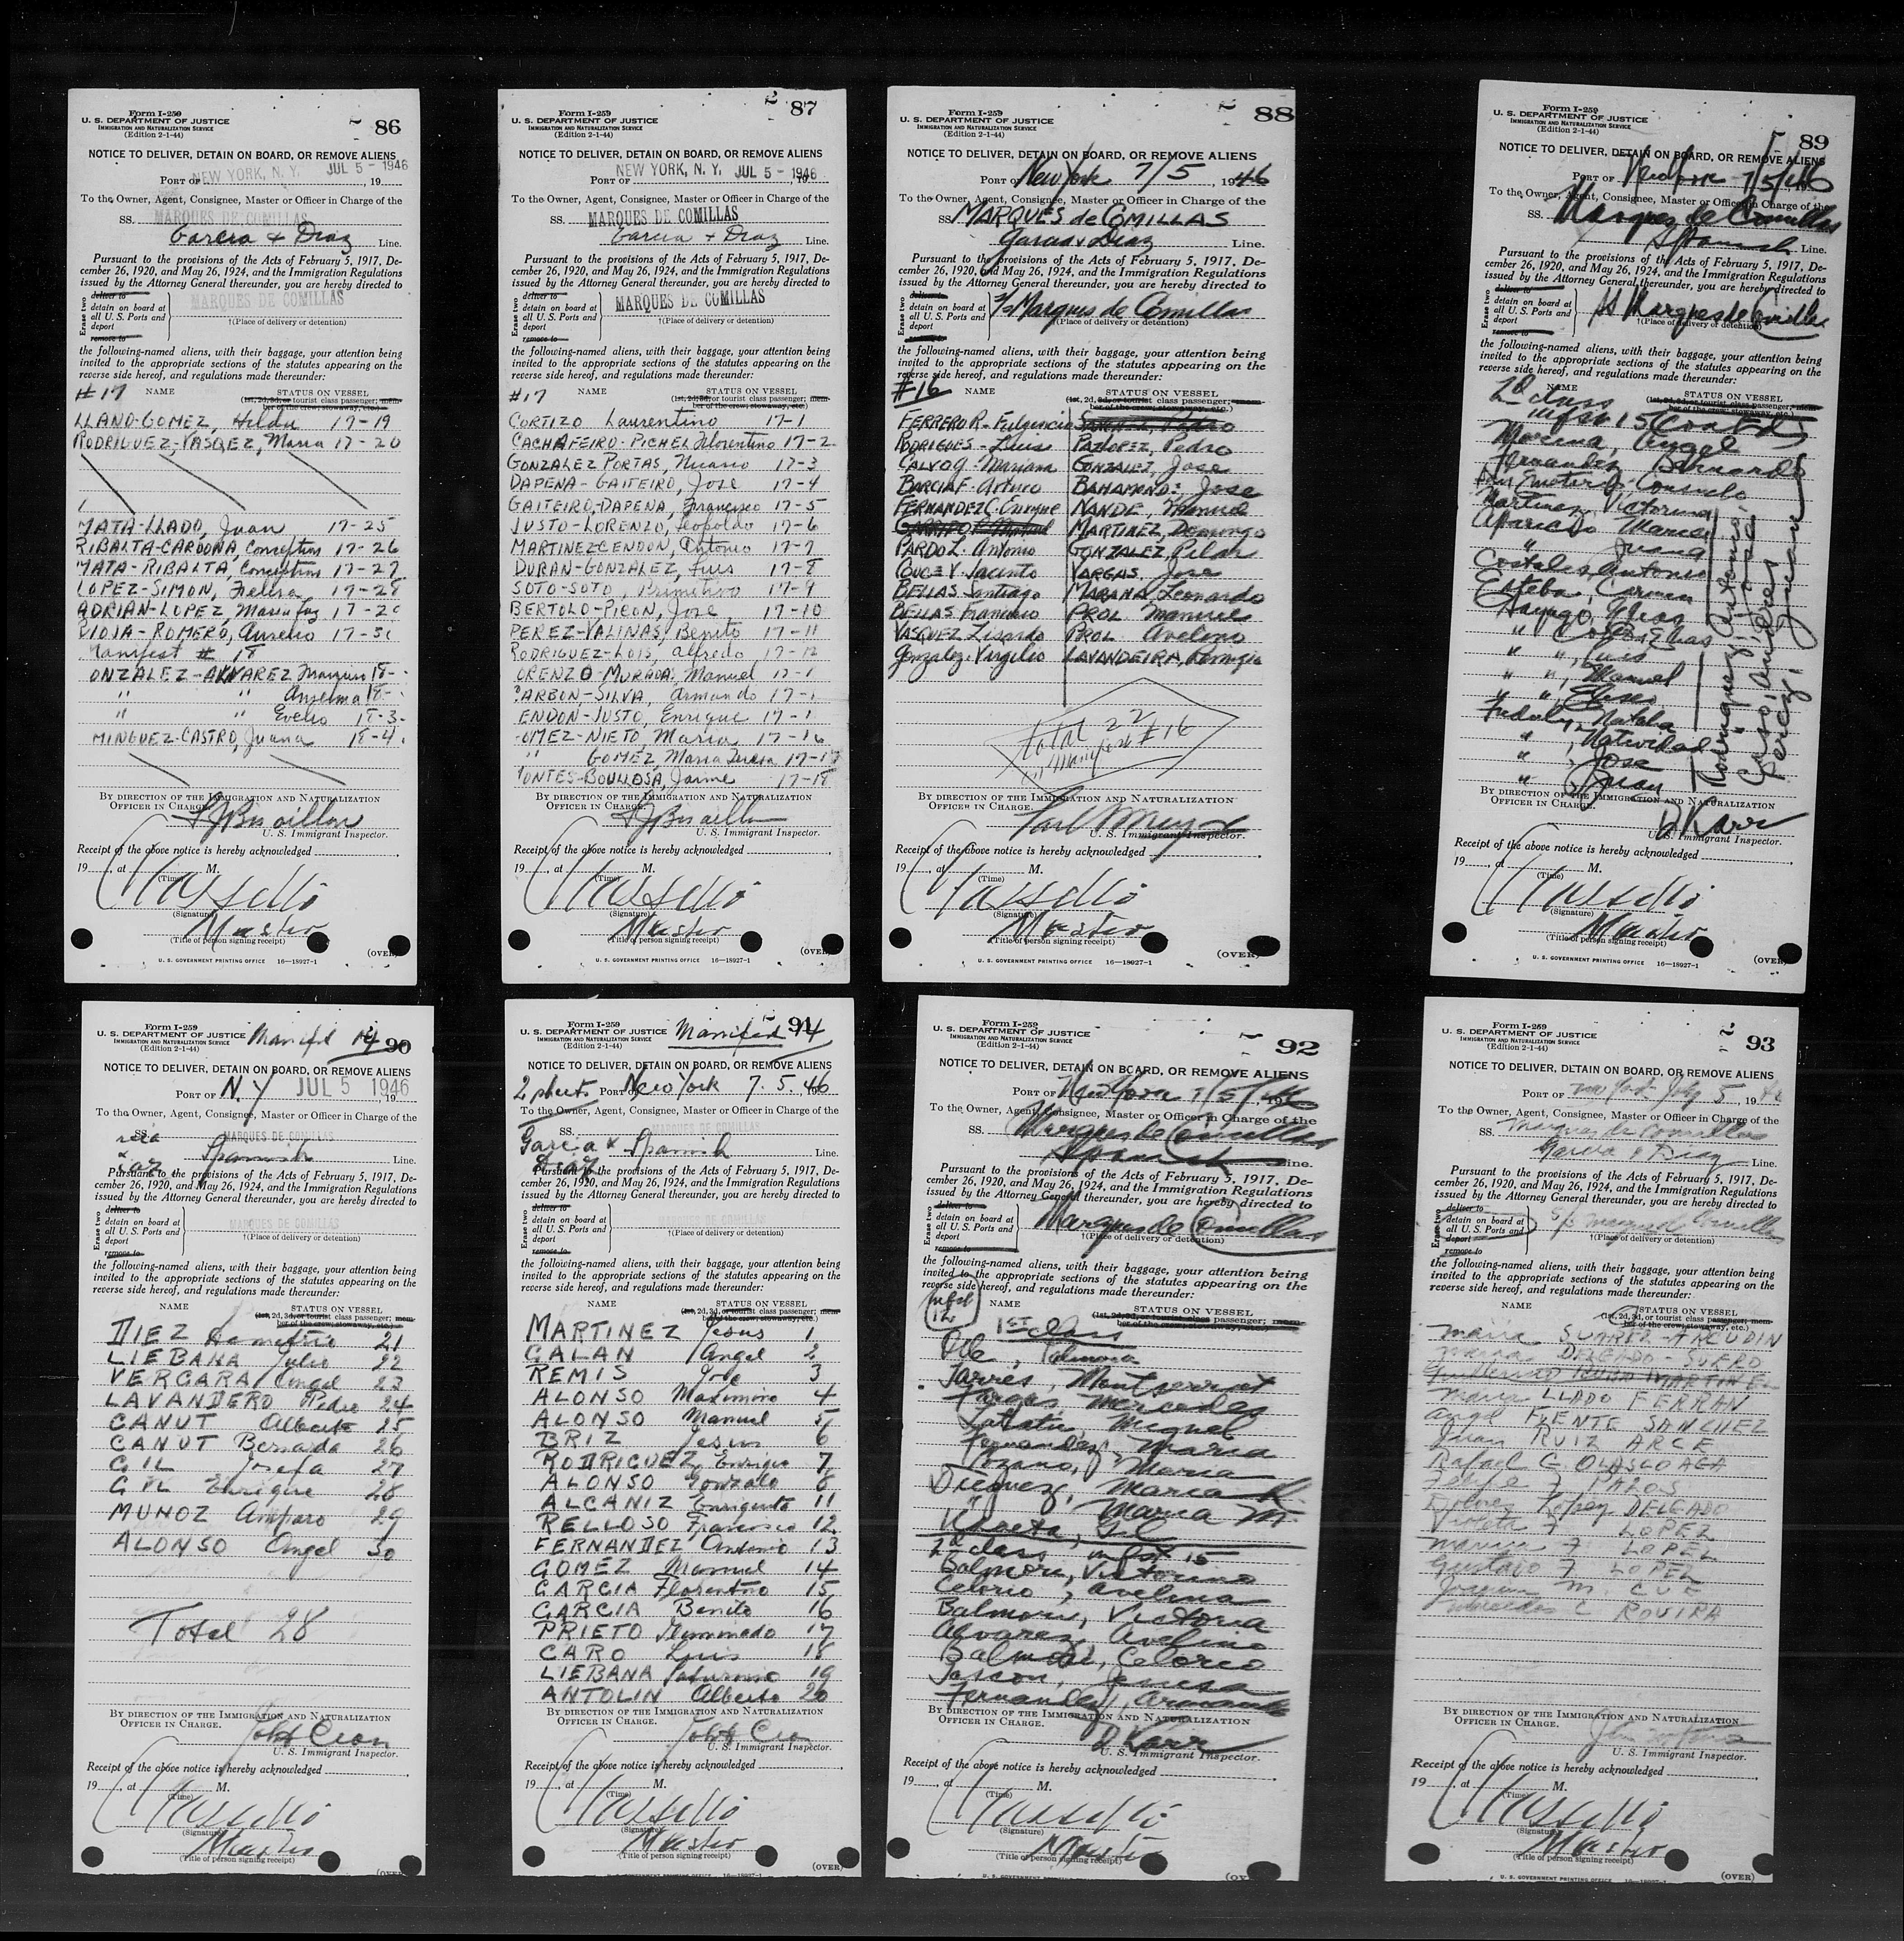 Form I-259
U. S. DEPARTMENT OF JUSTICE
IMMIGRATION AND NATURALIZATION SERVICE
(Edition 2-1-44)
86
NOTICE TO DELIVER, DETAIN ON BOARD, OR REMOVE ALIENS
PORT OF NEW YORK, N. Y. JUL 5 - 1946, 19
To the Owner, Agent, Consignee, Master or Officer in Charge of the
SS. MARQUES DE COMILLAS
Garcia & Diaz Line.
Pursuant to the provisions of the Acts of February 5, 1917, De-
cember 26, 1920, and May 26, 1924, and the Immigration Regulations
issued by the Attorney General thereunder, you are hereby directed to
Erase two
deliver to
detain on board at
all U. S. Ports and
deport
remove to
MARQUES DE COMILLAS
†(Place of delivery or detention)
the following-named aliens, with their baggage, your attention being
invited to the appropriate sections of the statutes appearing on the
reverse side hereof, and regulations made thereunder:
#17 NAME STATUS ON VESSEL
(1st, 2d, 3d, or tourist class passenger; mem-
ber of the crew; stowaway, etc.)
LLANO-GOMEZ, Hilda 17-19
RODRIGUEZ-VASQEZ, Maria 17-20
MATA-LLADO, Juan 17-25
RIBALTA-CARDONA, Conception 17-26
MATA-RIBALTA, Conception 17-27
LOPEZ-SIMON, Felisa 17-28
ADRIAN-LOPEZ, Maria Luz
RIOJA-ROMERO, Aurelio
Manifest # 18
ONZALEZ-ALVAREZ 18-
" " Anselma 18-
" " Evelio 18-3
MINGUEZ-CASTRO, Juana 18-4
BY DIRECTION OF THE IMMIGRATION AND NATURALIZATION
OFFICER IN CHARGE.
U. S. Immigrant Inspector.
Receipt of the above notice is hereby acknowledged
19, at M.
(Time)
(Signature)
Master
(Title of person signing receipt)
(OVER)
U. S. GOVERNMENT PRINTING OFFICE 16—18927-1
Form I-259
U. S. DEPARTMENT OF JUSTICE
IMMIGRATION AND NATURALIZATION SERVICE
(Edition 2-1-44)
87
NOTICE TO DELIVER, DETAIN ON BOARD, OR REMOVE ALIENS
PORT OF NEW YORK, N. Y. JUL 5 - 1946, 19
To the Owner, Agent, Consignee, Master or Officer in Charge of the
SS. MARQUES DE COMILLAS
Garcia + Diaz Line.
Pursuant to the provisions of the Acts of February 5, 1917, De-
cember 26, 1920, and May 26, 1924, and the Immigration Regulations
issued by the Attorney General thereunder, you are hereby directed to
Erase two
deliver to
detain on board at
all U. S. Ports and
deport
remove to
MARQUES DE COMILLAS
†(Place of delivery or detention)
the following-named aliens, with their baggage, your attention being
invited to the appropriate sections of the statutes appearing on the
reverse side hereof, and regulations made thereunder:
#17 NAME STATUS ON VESSEL
(1st, 2d, 3d, or tourist class passenger; mem-
ber of the crew; stowaway, etc.)
CORTIZO Laurentino 17-1
CACHAFEIRO-PICHEL Florentino 17-2
GONZALEZ PORTAS, 17-3
DAPENA-GAITEIRO, José 17-4
GAITEIRO-DAPENA, Francisco 17-5
JUSTO-LORENZO, Leopoldo 17-6
MARTINEZ-CENDON, Antonio 17-7
DURAN-GONZALEZ, Luis 17-8
SOTO-SOTO, Primitivo 17-9
BERTOLO-PICON, José 17-10
PEREZ-VALINAS, Benito 17-11
RODRIGUEZ-LOIS, Alfredo 17-12
ORENZO-MURADA, Manuel
ARBON-SILVA, Armando
ENDON-JUSTO, Enrique
OMEZ-NIETO, Maria 17-16
" GOMEZ, Maria Teresa 17-17
ONTES-BOULLOSA, Jaime 17-18
BY DIRECTION OF THE IMMIGRATION AND NATURALIZATION
OFFICER IN CHARGE.
U. S. Immigrant Inspector.
Receipt of the above notice is hereby acknowledged
19, at M.
(Time)
(Signature)
Master
(Title of person signing receipt)
(OVER)
U. S. GOVERNMENT PRINTING OFFICE 16—18927-1
Form I-259
U. S. DEPARTMENT OF JUSTICE
IMMIGRATION AND NATURALIZATION SERVICE
(Edition 2-1-44)
88
NOTICE TO DELIVER, DETAIN ON BOARD, OR REMOVE ALIENS
PORT OF New York 7/5, 1946
To the Owner, Agent, Consignee, Master or Officer in Charge of the
SS. MARQUES de COMILLAS
Garcia & Diaz Line.
Pursuant to the provisions of the Acts of February 5, 1917, De-
cember 26, 1920, and May 26, 1924, and the Immigration Regulations
issued by the Attorney General thereunder, you are hereby directed to
Erase two
deliver to
detain on board at
all U. S. Ports and
deport
remove to
Marques de Comillas
†(Place of delivery or detention)
the following-named aliens, with their baggage, your attention being
invited to the appropriate sections of the statutes appearing on the
reverse side hereof, and regulations made thereunder:
#16 NAME STATUS ON VESSEL
(1st, 2d, 3d, or tourist class passenger; mem-
ber of the crew; stowaway, etc.)
FERRERO R. Fulgencio
RODRIGUES - Luis PAZLOPEZ, Pedro
CALVO G. Mariana GONZALEZ, Jose
BARCIA F. Arturo BAHAMONDE, Jose
FERNANDEZ C. Enrique NANDE, Manuel
MARTINEZ, Domingo
PARDO L. Antonio GONZALEZ, Pilar
COUCE V. Jacinto VARGAS, Jose
BELLAS Santiago MABANA, Leonardo
BELLAS Francisco PROL Manuel
VASQUEZ Lisardo PROL Avelino
Gonzalez. Virgilio LAVANDEIRA, Remigia
total 22
on manifest #16
BY DIRECTION OF THE IMMIGRATION AND NATURALIZATION
OFFICER IN CHARGE.
U. S. Immigrant Inspector.
Receipt of the above notice is hereby acknowledged
19, at M.
(Time)
(Signature)
Master
(Title of person signing receipt)
(OVER)
U. S. GOVERNMENT PRINTING OFFICE 16—18927-1
Form I-259
U. S. DEPARTMENT OF JUSTICE
IMMIGRATION AND NATURALIZATION SERVICE
(Edition 2-1-44)
89
NOTICE TO DELIVER, DETAIN ON BOARD, OR REMOVE ALIENS
PORT OF New York 7/5/46
To the Owner, Agent, Consignee, Master or Officer in Charge of the
SS. Marques de Comillas
Spanish Line.
Pursuant to the provisions of the Acts of February 5, 1917, De-
cember 26, 1920, and May 26, 1924, and the Immigration Regulations
issued by the Attorney General thereunder, you are hereby directed to
Erase two
deliver to
detain on board at
all U. S. Ports and
deport
remove to
SS Marques de Comillas
†(Place of delivery or detention)
the following-named aliens, with their baggage, your attention being
invited to the appropriate sections of the statutes appearing on the
reverse side hereof, and regulations made thereunder:
NAME STATUS ON VESSEL
(1st, 2d, 3d, or tourist class passenger; mem-
ber of the crew; stowaway, etc.)
2d class
mfst 15 Contd
Angel
Fernandez Bernardo
Consuelo
Martinez, Victorina
Aparicio Maria
" Juana
Costales, Antonio
Esteba, Carmen
Elias
"
" ", Luis
" ", Manuel
" ", Eliseo
Natalia
" , Natividad
" , Jose
" , Juan
Rodriguez, Antonio
Perez, Juan
BY DIRECTION OF THE IMMIGRATION AND NATURALIZATION
OFFICER IN CHARGE.
D Karr
U. S. Immigrant Inspector.
Receipt of the above notice is hereby acknowledged
19, at M.
(Time)
(Signature)
Master
(Title of person signing receipt)
(OVER)
U. S. GOVERNMENT PRINTING OFFICE 16—18927-1
Form I-259
U. S. DEPARTMENT OF JUSTICE
IMMIGRATION AND NATURALIZATION SERVICE
(Edition 2-1-44)
Manifest 14
90
NOTICE TO DELIVER, DETAIN ON BOARD, OR REMOVE ALIENS
PORT OF N.Y JUL 5 1946 19
To the Owner, Agent, Consignee, Master or Officer in Charge of the
SS. MARQUES DE COMILLAS
Spanish Line.
Pursuant to the provisions of the Acts of February 5, 1917, De-
cember 26, 1920, and May 26, 1924, and the Immigration Regulations
issued by the Attorney General thereunder, you are hereby directed to
Erase two
deliver to
detain on board at
all U. S. Ports and
deport
remove to
MARQUES DE COMILLAS
†(Place of delivery or detention)
the following-named aliens, with their baggage, your attention being
invited to the appropriate sections of the statutes appearing on the
reverse side hereof, and regulations made thereunder:
NAME STATUS ON VESSEL
(1st, 2d, 3d, or tourist class passenger; mem-
ber of the crew; stowaway, etc.)
DIEZ Demetrio 21
LIEBANA Julio 22
VERGARA Angel 23
LAVANDERO Pedro 24
CANUT Alberto 25
CANUT Bernarda 26
GIL Josefa 27
GIL Enrique 28
MUNOZ Amparo 29
ALONSO Angel 30
Total 28
BY DIRECTION OF THE IMMIGRATION AND NATURALIZATION
OFFICER IN CHARGE.
U. S. Immigrant Inspector.
Receipt of the above notice is hereby acknowledged
19, at M.
(Time)
(Signature)
Master
(Title of person signing receipt)
(OVER)
Form I-259
U. S. DEPARTMENT OF JUSTICE
IMMIGRATION AND NATURALIZATION SERVICE
(Edition 2-1-44)
Manifest 14
91
NOTICE TO DELIVER, DETAIN ON BOARD, OR REMOVE ALIENS
2 sheets PORT OF New York 7. 5. 46
To the Owner, Agent, Consignee, Master or Officer in Charge of the
SS. MARQUES DE COMILLAS
Garcia & Diaz Spanish Line.
Pursuant to the provisions of the Acts of February 5, 1917, De-
cember 26, 1920, and May 26, 1924, and the Immigration Regulations
issued by the Attorney General thereunder, you are hereby directed to
Erase two
deliver to
detain on board at
all U. S. Ports and
deport
remove to
MARQUES DE COMILLAS
†(Place of delivery or detention)
the following-named aliens, with their baggage, your attention being
invited to the appropriate sections of the statutes appearing on the
reverse side hereof, and regulations made thereunder:
NAME STATUS ON VESSEL
(1st, 2d, 3d, or tourist class passenger; mem-
ber of the crew; stowaway, etc.)
MARTINEZ Jesus 1
GALAN Angel 2
REMIS Jose 3
ALONSO Maximino 4
ALONSO Manuel 5
BRIZ Jesus 6
RODRIGUEZ Enrique 7
ALONSO Gonzalo 8
ALCANIZ 11
RELLOSO Francisco 12
FERNANDEZ Antonio 13
GOMEZ Manuel 14
GARCIA Florentino 15
GARCIA Benito 16
PRIETO 17
CARO Luis 18
LIEBANA Saturnino 19
ANTOLIN Alberto 20
BY DIRECTION OF THE IMMIGRATION AND NATURALIZATION
OFFICER IN CHARGE.
U. S. Immigrant Inspector.
Receipt of the above notice is hereby acknowledged
19, at M.
(Time)
(Signature)
Master
(Title of person signing receipt)
(OVER)
U. S. GOVERNMENT PRINTING OFFICE 16—18927-1
Form I-259
U. S. DEPARTMENT OF JUSTICE
IMMIGRATION AND NATURALIZATION SERVICE
(Edition 2-1-44)
92
NOTICE TO DELIVER, DETAIN ON BOARD, OR REMOVE ALIENS
PORT OF New York 7/5/46
To the Owner, Agent, Consignee, Master or Officer in Charge of the
SS. Marques de Comillas
Spanish Line.
Pursuant to the provisions of the Acts of February 5, 1917, De-
cember 26, 1920, and May 26, 1924, and the Immigration Regulations
issued by the Attorney General thereunder, you are hereby directed to
Erase two
deliver to
detain on board at
all U. S. Ports and
deport
remove to
Marques de Comillas
†(Place of delivery or detention)
the following-named aliens, with their baggage, your attention being
invited to the appropriate sections of the statutes appearing on the
reverse side hereof, and regulations made thereunder:
mfst 12
NAME STATUS ON VESSEL
(1st, 2d, 3d, or tourist class passenger; mem-
ber of the crew; stowaway, etc.)
1ST class
Montserrat
Mercedes
Miguel
Fernandez, Maria
Lozano, Maria
Dieguez, Maria R.
" Maria M.
Gil
2d class mfst 15
Balmori, Victorino
Celorio, Avelina
Balmori, Victoria
Alvarez, Avelino
Balmori, Celorio
Fernandez, Armando
BY DIRECTION OF THE IMMIGRATION AND NATURALIZATION
OFFICER IN CHARGE.
D Karr
U. S. Immigrant Inspector.
Receipt of the above notice is hereby acknowledged
19, at M.
(Time)
(Signature)
Master
(Title of person signing receipt)
Form I-259
U. S. DEPARTMENT OF JUSTICE
IMMIGRATION AND NATURALIZATION SERVICE
(Edition 2-1-44)
93
NOTICE TO DELIVER, DETAIN ON BOARD, OR REMOVE ALIENS
PORT OF New York July 5, 1946
To the Owner, Agent, Consignee, Master or Officer in Charge of the
SS. Marques de Comillas
Garcia & Diaz Line.
Pursuant to the provisions of the Acts of February 5, 1917, De-
cember 26, 1920, and May 26, 1924, and the Immigration Regulations
issued by the Attorney General thereunder, you are hereby directed to
Erase two
deliver to
detain on board at
all U. S. Ports and
deport
remove to
S/S Marques de Comillas
†(Place of delivery or detention)
the following-named aliens, with their baggage, your attention being
invited to the appropriate sections of the statutes appearing on the
reverse side hereof, and regulations made thereunder:
NAME STATUS ON VESSEL
(1st, 2d, 3d, or tourist class passenger; mem-
ber of the crew; stowaway, etc.)
Maria SUAREZ-ARCUDIN
Maria DELGADO SUERO
Maria LLADO FERRAN
Angel FUENTE SANCHEZ
Juan RUIZ ARCE
Rafael G. OLASCOAGA
Felipe F PALOS
Dolores Lopez DELGADO
Violeta F LOPEZ
Maria F LOPEZ
Gustavo F LOPEZ
Joaquin M. CUE
Mercedes C ROVIRA
BY DIRECTION OF THE IMMIGRATION AND NATURALIZATION
OFFICER IN CHARGE.
U. S. Immigrant Inspector.
Receipt of the above notice is hereby acknowledged
19, at M.
(Time)
(Signature)
Master
(Title of person signing receipt)
(OVER)
U. S. GOVERNMENT PRINTING OFFICE 16—18927-1